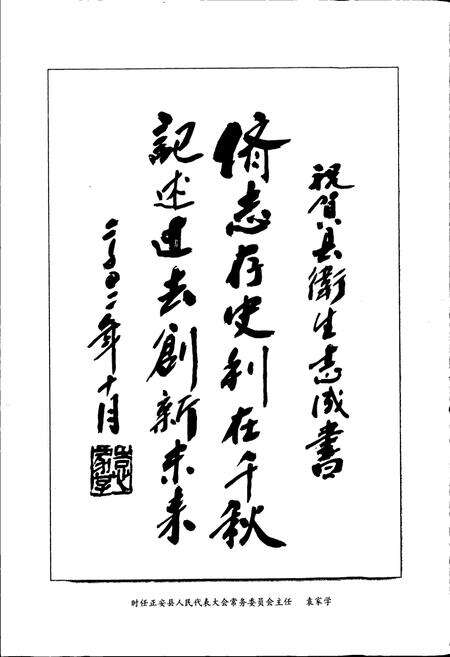 祝賀县衛生志成書
脩志存史利在千秋
記述过去創新未来
二〇〇二年十月
袁家学
时任正安县人民代表大会常务委员会主任 袁家学